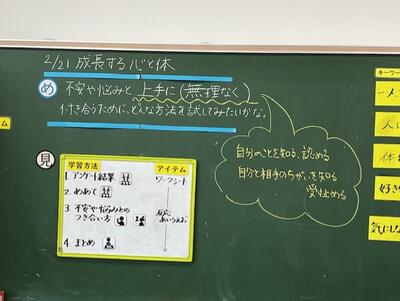 2/21 成長する心と体
め 不安や悩みと上手に(無理なく)
付き合うために、どんな方法を試してみたいかな。
自分のことを知る、認める
自分と相手のちがいを知る
受け止める
見
学習方法 アイテム
1. アンケート結果 ワークシート
2. めあて
3 不安や悩みとの
つき合い方
反応
あいうえお
4 まとめ
キーワー